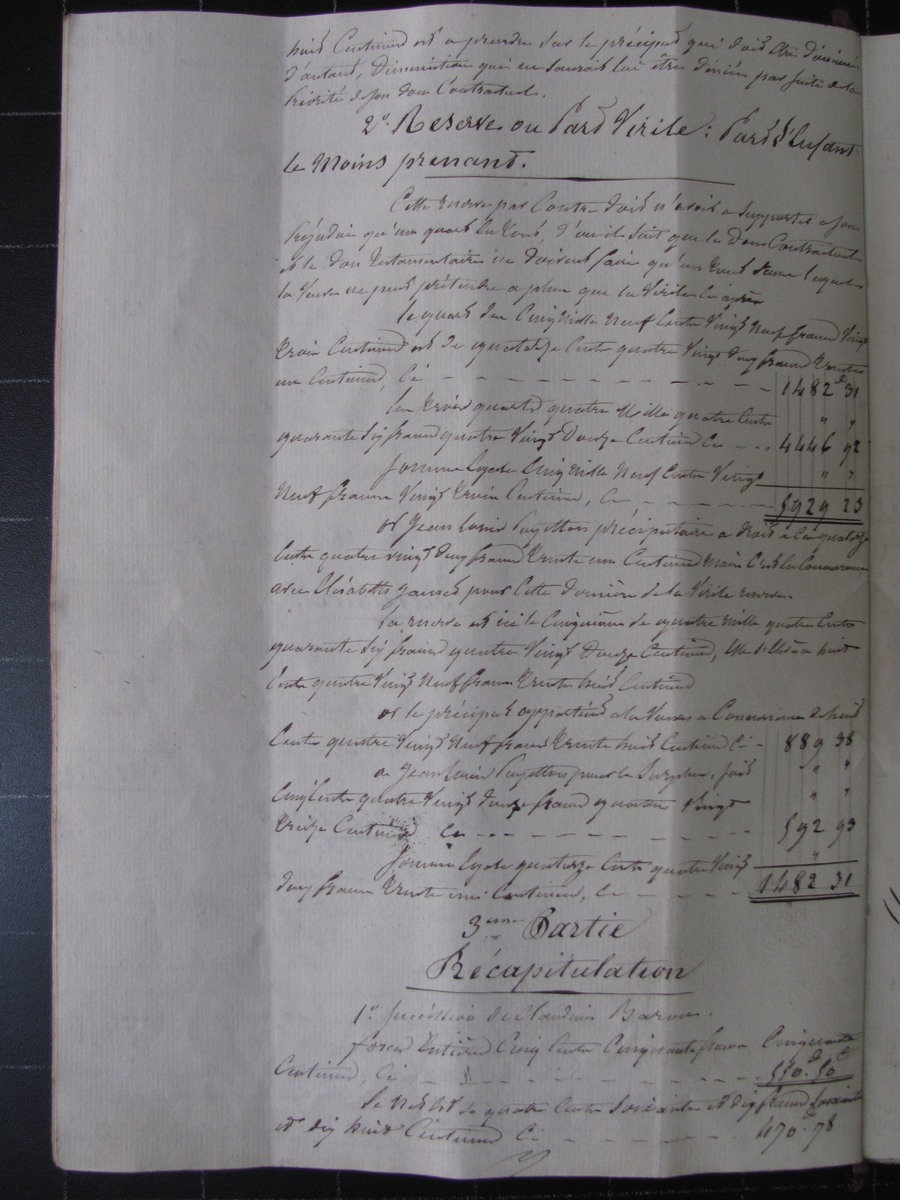 huit Centimes est a prendre sur le préciput qui doit être diminué
d'autant, Diminution qui ne saurait lui être déniée par suite de la
Priorité de son don Contractuel.
2º. Reserve ou Part Virile: Part d'Enfant
le Moins prenant.
Cette reserve par Contre doit n'avoir a supporter a son
Préjudice qu'un quart du tout, d'où il suit que le Don Contractuel
et le don testamentaire ne doivent faire qu'un tout dans lequel
la Veuve ne peut prétendre a plus que la Virile ci après
le quart des Cinq Mille Neuf Cents Vingt Neuf francs Vingt
trois Centimes est de quatorze Cents quatre Vingt deux francs trente
un Centimes, Ci 1482 31
Les trois quarts quatre Mille quatre Cents
quarante six francs quatre Vingt Douze Centimes Ci 4446 92
Somme Egale Cinq Mille Neuf Cents Vingt
Neuf francs Vingt trois Centimes, Ci 5929 23
or Jean Louis préciputaire a droit a ces quatorze
Cents quatre vingt deux francs trente un Centimes mais C'est en Concurrence
avec Elisabeth pour Cette dernière de la Virile reserve.
La reserve est ici le Cinquième de quatre mille quatre Cents
quarante six francs quatre Vingt Douze Centimes, Elle s'élève a huit
Cents quatre Vingt Neuf francs trente huit Centimes
or le préciput appartient a la Veuve a Concurrence de huit
Cents quatre Vingt Neuf francs trente huit Centimes Ci 889 38
a Jean Louis pour le Surplus, soit
Cinq Cents quatre Vingt douze francs quatre Vingt
treize Centimes Ci 592 93
Somme Egale quatorze Cents quatre Vingt
deux francs trente un Centimes, Ci 1482 31
3eme Partie
Récapitulation
1º. Succession de Claudine Baron.
forces Entières Cinq Cents Cinquante francs Cinquante
Centimes, Ci 550. 50
Le Net est de quatre Cents Soixante et dix francs Soixante
et dix huit Centimes Ci 470. 78